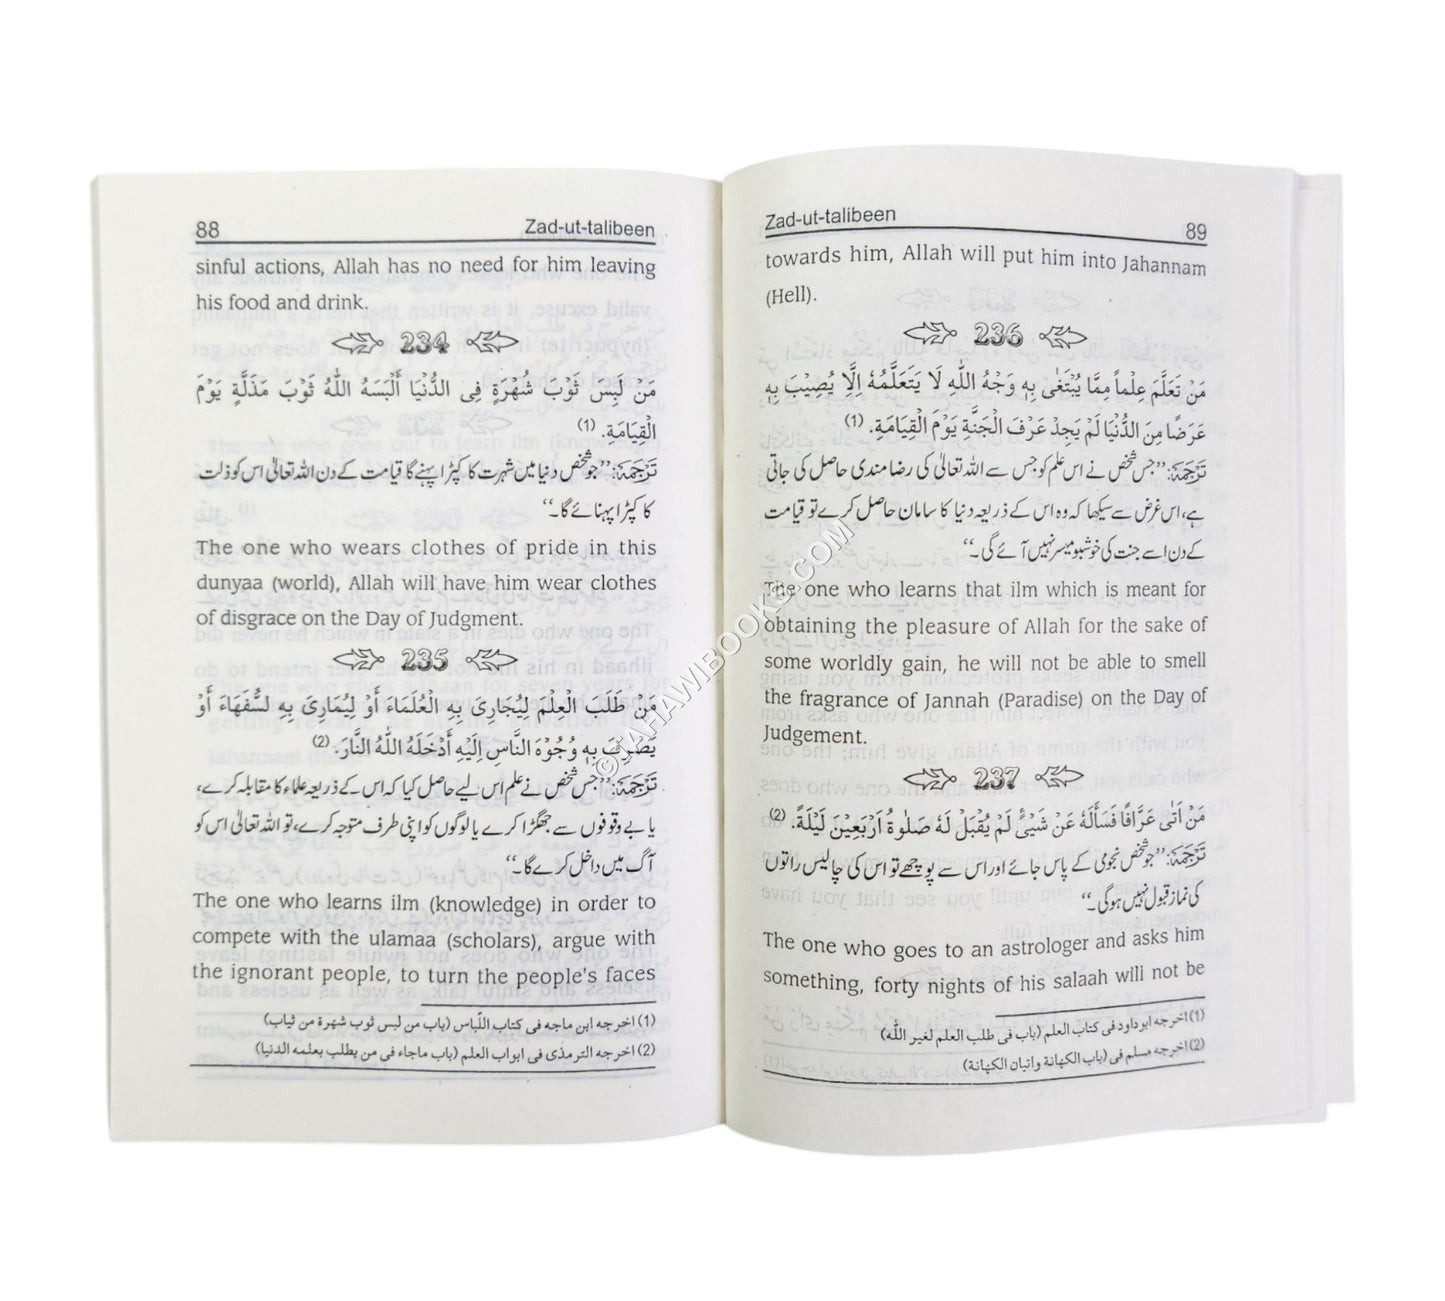 88 Zad-ut-talibeen
sinful actions, Allah has no need for him leaving
his food and drink.
234
مَنْ لَبِسَ ثَوْبَ شُهْرَةٍ فِى الدُّنْيَا أَلْبَسَهُ اللّٰهُ ثَوْبَ مَذَلَّةٍ يَوْمَ
الْقِيَامَةِ. (1)
تَرْجَمَة: ”جو شخص دنیا میں شہرت کا کپڑا پہنے گا قیامت کے دن اللہ تعالیٰ اس کو ذلت
کا کپڑا پہنائے گا۔“
The one who wears clothes of pride in this
dunyaa (world), Allah will have him wear clothes
of disgrace on the Day of Judgment.
235
مَنْ طَلَبَ الْعِلْمَ لِيُجَارِىَ بِهِ الْعُلَمَاءَ أَوْ لِيُمَارِىَ بِهِ لسُّفَهَاءَ أَوْ
يَصْرِفَ بِهٖ وُجُوْهَ النَّاسِ إِلَيْهِ أَدْخَلَهُ اللّٰهُ النَّارَ. (2)
تَرْجَمَة: ”جس شخص نے علم اس لیے حاصل کیا کہ اس کے ذریعہ علماء کا مقابلہ کرے،
یا بے وقوفوں سے جھگڑا کرے یا لوگوں کو اپنی طرف متوجہ کرے، تو اللہ تعالیٰ اس کو
آگ میں داخل کرے گا۔“
The one who learns ilm (knowledge) in order to
compete with the ulamaa (scholars), argue with
the ignorant people, to turn the people's faces
(1) اخرجه ابن ماجه فى كتاب اللّباس (باب من لبس ثوب شهرة من ثياب)
(2) اخرجه الترمذى فى ابواب العلم (باب ماجاء فى من يطلب بعلمه الدنيا)
Zad-ut-talibeen 89
towards him, Allah will put him into Jahannam
(Hell).
236
مَنْ تَعَلَّمَ عِلْماً مِمَّا يُبْتَغٰى بِهٖ وَجْهُ اللّٰهِ لَا يَتَعَلَّمُهٗ اِلَّا يُصِيْبَ بِهٖ
عَرَضًا مِنَ الدُّنْيَا لَمْ يَجِدْ عَرْفَ الْجَنَّةِ يَوْمَ الْقِيَامَةِ. (1)
تَرْجَمَة: ”جس شخص نے اس علم کو جس سے اللہ تعالیٰ کی رضا مندی حاصل کی جاتی
ہے، اس غرض سے سیکھا کہ وہ اس کے ذریعہ دنیا کا سامان حاصل کرے تو قیامت
کے دن اسے جنت کی خوشبو میسر نہیں آئے گی۔“
The one who learns that ilm which is meant for
obtaining the pleasure of Allah for the sake of
some worldly gain, he will not be able to smell
the fragrance of Jannah (Paradise) on the Day of
Judgement.
237
مَنْ اَتٰى عَرَّافًا فَسَأَلَهٗ عَنْ شَيْئٍ لَمْ يُقْبَلْ لَهٗ صَلٰوةُ اَرْبَعِيْنَ لَيْلَةً. (2)
تَرْجَمَة: ”جو شخص نجومی کے پاس جائے اور اس سے پوچھے تو اس کی چالیس راتوں
کی نماز قبول نہیں ہوگی۔“
The one who goes to an astrologer and asks him
something, forty nights of his salaah will not be
(1) اخرجه ابوداود فى كتاب العلم (باب فى طلب العلم لغير اللّٰه)
(2) اخرجه مسلم فى (باب الكهانة واتيان الكهانة)
© TAHAWIBOOKS.COM